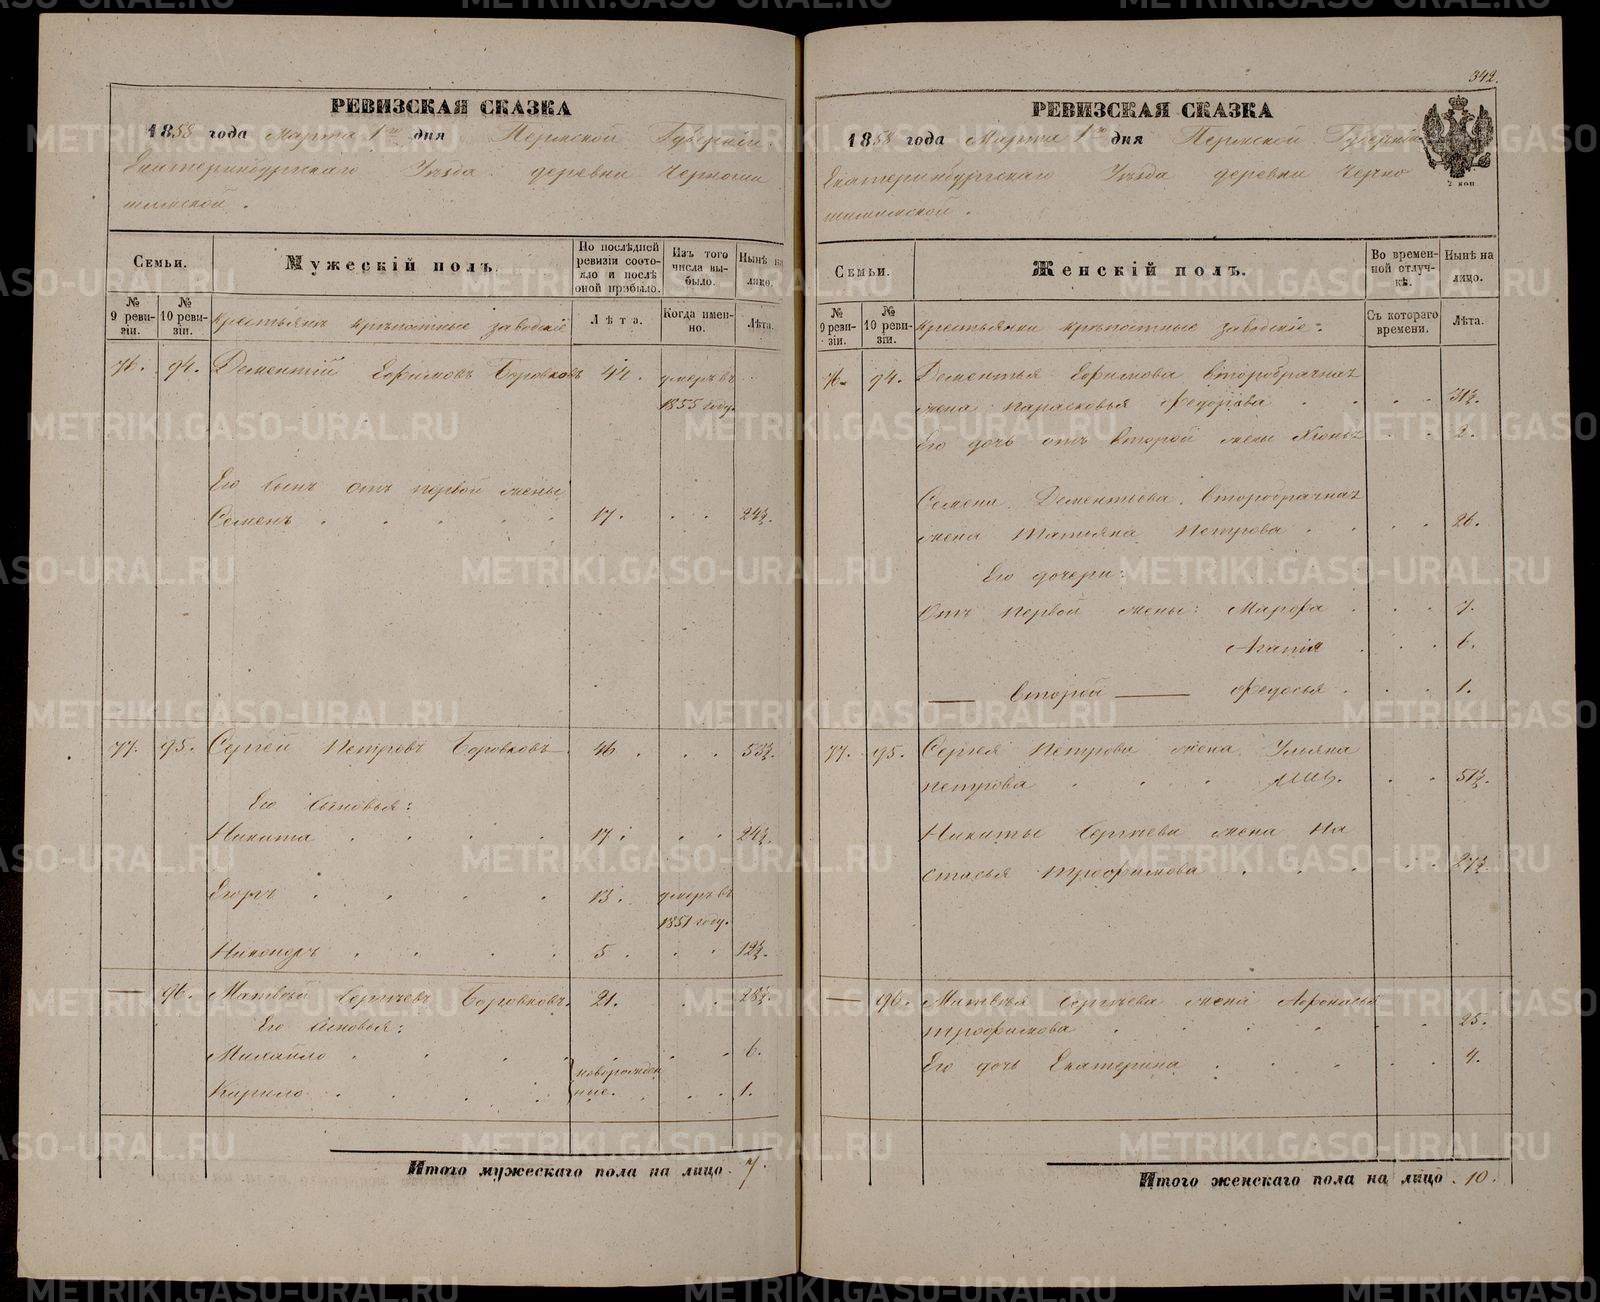 РЕВИЗСКАЯ СКАЗКА
1858 года Марта 1го дня Пермской Губерніи
Екатеринбургскаго Уѣзда деревни Черноши
шимской.
Семьи.
Мужескій полъ.
По послѣдней ревизіи состояло и послѣ оной прибыло.
Изъ того числа выбыло.
Нынѣ на лицо.
№ 9 ревизіи.
№ 10 ревизіи.
Крестьянъ крѣпостные заводскіе
Лѣта.
Когда именно.
Лѣта.
76. 94. Дементій Ефимовъ Боровковъ 44. умеръ въ
1855 году.
Его сынъ отъ первой жены
Семенъ 17. 24½.
77. 95. Сергей Петровъ Боровковъ 46. 53½.
Его сыновья:
Никита 17. 24½.
Егоръ 13. умеръ въ
1851 году.
Никоноръ 5. 12½.
— 96. Матвей Сергѣевъ Боровковъ. 21. 28½.
Его сыновья:
Михайло 6.
новорожден
Кирило ные. 1.
Итого мужескаго пола на лицо 7.
342.
РЕВИЗСКАЯ СКАЗКА
1858 года Марта 1го дня Пермской Губерніи
Екатеринбургскаго Уѣзда деревни Черно
шишимской.
2 коп
Семьи.
Женскій полъ.
Во временной отлучкѣ.
Нынѣ на лицо.
№ 9 ревизіи.
№ 10 ревизіи.
Крестьянки крѣпостные заводскіе:
Съ котораго времени.
Лѣта.
76. 94. Дементья Ефимова второбрачная
жена Парасковья Федорова 31½.
Его дочь отъ второй жены 2.
Семена Дементьева второбрачная
жена Татьяна Петрова 26.
Его дочери:
Отъ первой жены: Марфа 7.
Агапія 6.
— второй — Федосья 1.
77. 95. Сергея Петрова жена Ульяна
Петрова 51½.
Никиты Сергѣева жена На
стасья Трофимова 27½.
— 96. Матвея Сергѣева жена Афонасья
Трофимова 25.
Его дочь Екатерина 4.
Итого женскаго пола на лицо 10.
METRIKI.GASO-URAL.RU